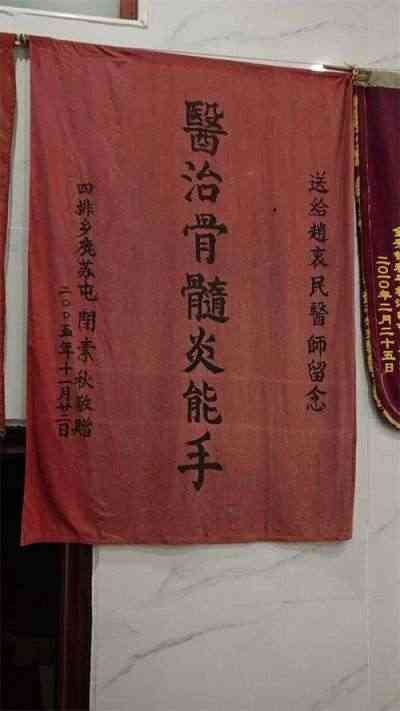 送给趙衷民醫師留念
醫治骨髓炎能手
四排乡尧苏屯 閉素秋敬贈
二〇〇五年十一月廿二日
二〇一〇年二月二十五日